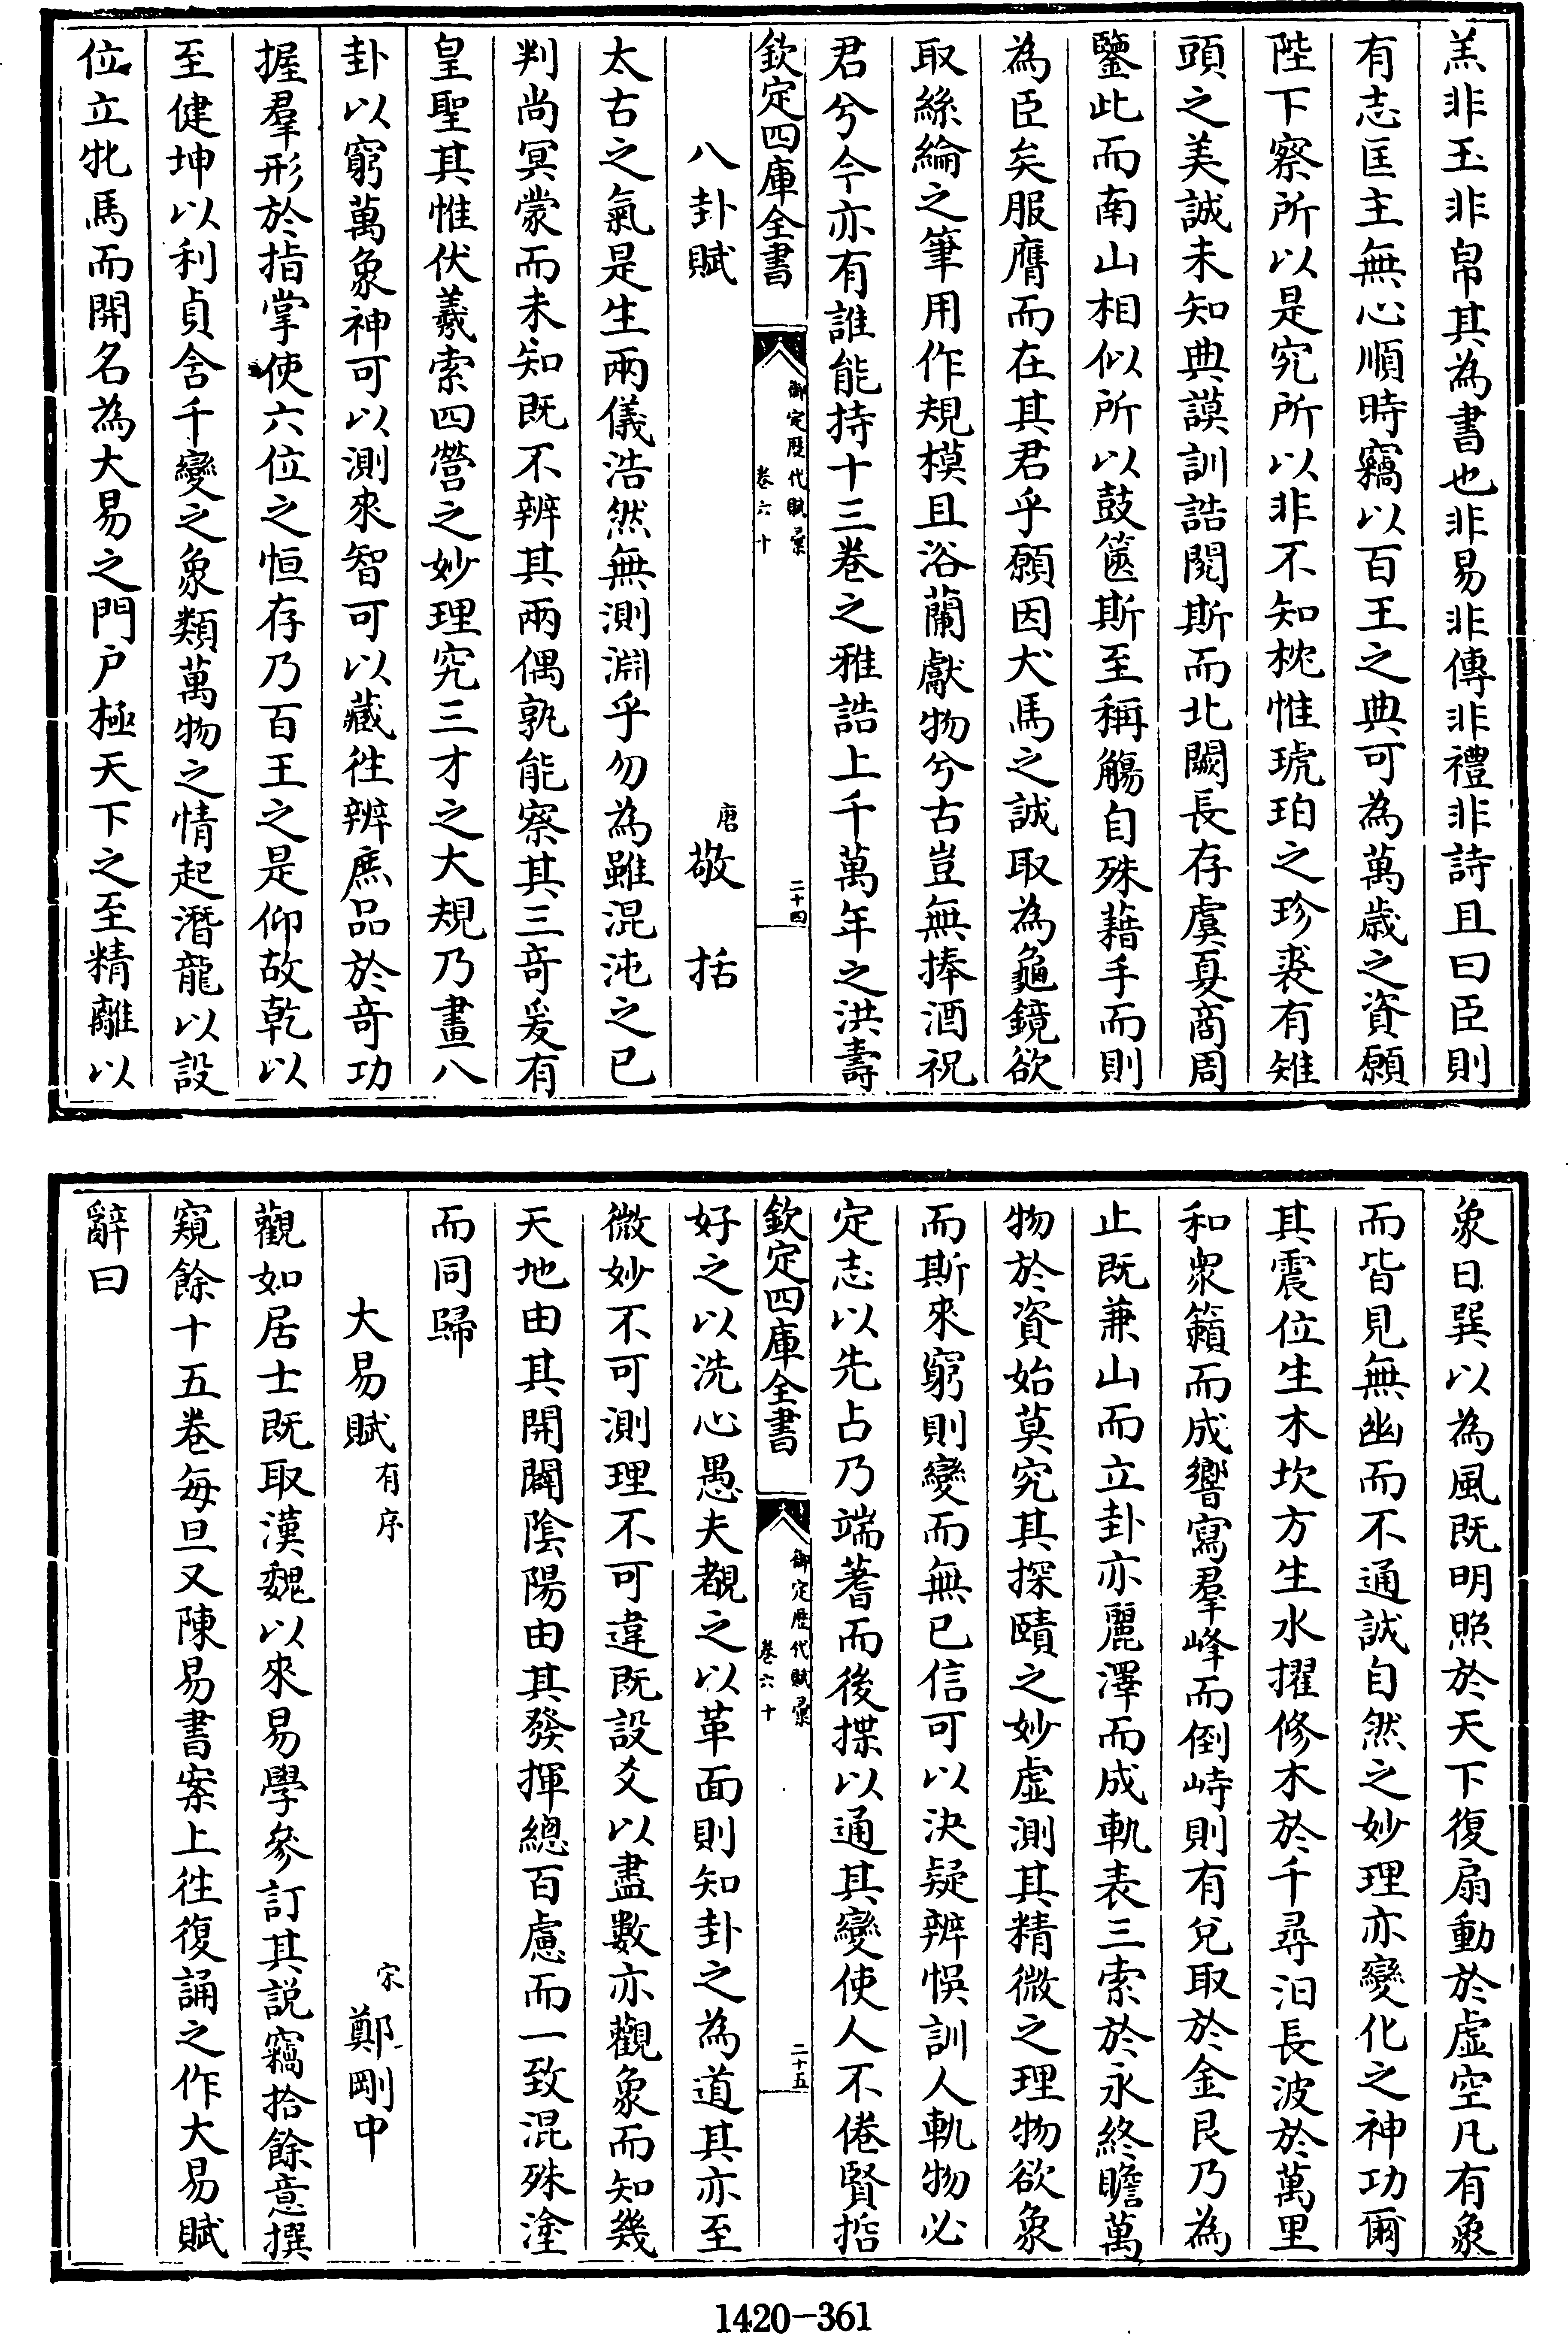 羔非玉非帛其為書也非易非傳非禮非詩且曰臣則
有志匡主無心順時竊以百王之典可為萬歳之資願
陛下察所以是究所以非不知枕惟琥珀之珍裘有雉
頭之美誠未知典謨訓誥閱斯而北闕長存虞夏商周
鑒此而南山相似所以鼓篋斯至稱觴自殊藉手而則
為臣矣服膺而在其君乎願因犬馬之誠取為龜鏡欲
取絲綸之筆用作規模且浴蘭獻物兮古豈無捧酒祝
君兮今亦有誰能持十三巻之雅誥上千萬年之洪壽
欽定四庫全書
御定歴代賦彙
巻六十
二十四
八卦賦
唐敬括
太古之氣是生兩儀浩然無測淵乎勿為雖混沌之已
判尚冥蒙而未知既不辨其兩偶孰能察其三竒爰有
皇聖其惟伏羲索四營之妙理究三才之大規乃畫八
卦以窮萬象神可以測來智可以藏徃辨庶品於竒功
握羣形於指掌使六位之恒存乃百王之是仰故乾以
至健坤以利貞含千變之象類萬物之情起潛龍以設
位立牝馬而開名為大易之門户極天下之至精離以
象日巽以為風既明照於天下復扇動於虚空凡有象
而皆見無幽而不通誠自然之妙理亦變化之神功爾
其震位生木坎方生水擢修木於千尋汩長波於萬里
和衆籟而成響寫羣峰而倒峙則有兌取於金艮乃為
止既兼山而立卦亦麗澤而成軌表三索於永終瞻萬
物於資始莫究其探賾之妙虚測其精微之理物欲象
而斯來窮則變而無已信可以決疑辨悞訓人軌物必
定志以先占乃端蓍而後揲以通其變使人不倦賢哲
欽定四庫全書
御定歴代賦彙
巻六十
二十五
好之以洗心愚夫覩之以革面則知卦之為道其亦至
微妙不可測理不可違既設爻以盡數亦觀象而知幾
天地由其開闢隂陽由其發揮總百慮而一致混殊塗
而同歸
大易賦有序
宋鄭剛中
觀如居士既取漢魏以來易學參訂其説竊拾餘意撰
窺餘十五巻每旦又陳易書案上徃復誦之作大易賦
辭曰
1420-361